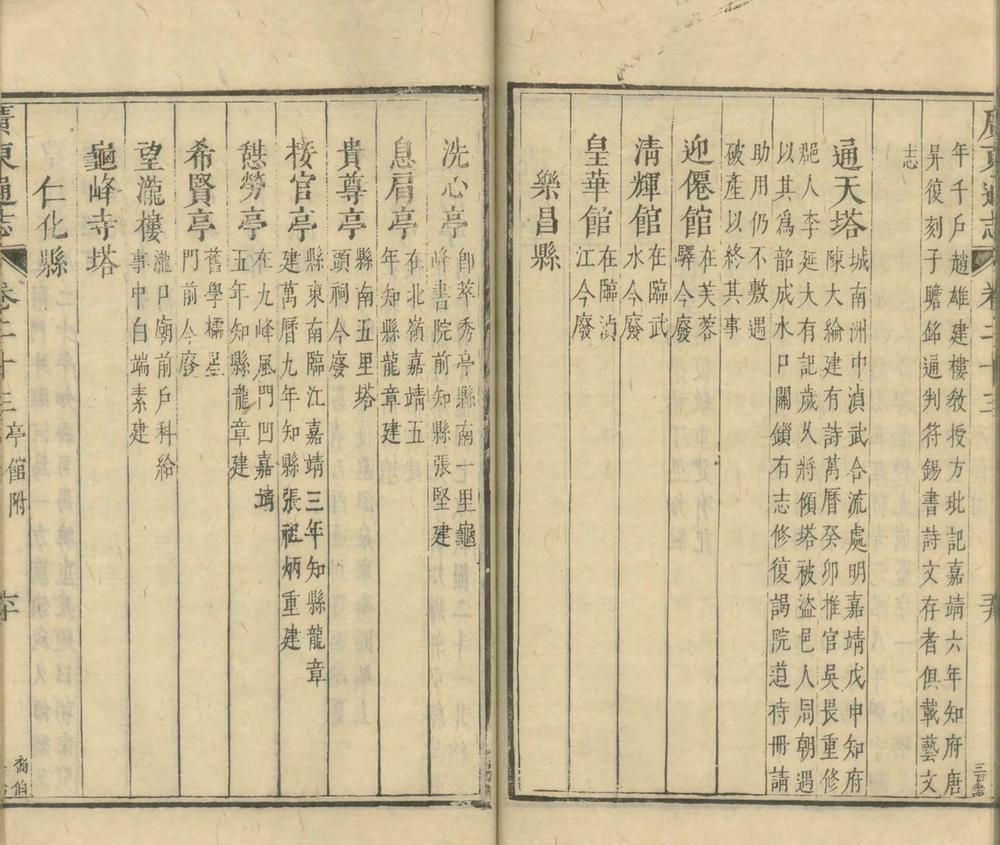 廣東通志
卷二十三
年千戶趙雄建樓教授方玭記嘉靖六年知府唐
昇復刻子瞻銘通判符錫書詩文存者俱載藝文
志
通天塔
城南洲中滇武合流處明嘉靖戊申知府
陳大綸建有詩萬曆癸卯推官吳畏重修
邑人李延大有記歲久將傾塔被盜邑人周朝遇
以其為韶成水口關鎖有志修復謁院道待冊請
助用仍不敷遇
破產以終其事
迎僊館
在芙蓉
驛今廢
清輝館
在臨武
水今廢
皇華館
在臨滇
江今廢
樂昌縣
洗心亭
卽萃秀亭縣南七里龜
峰書院前知縣張堅建
息肩亭
在北嶺嘉靖五
年知縣龍章建
貴尊亭
縣南五里塔
頭祠今廢
接官亭
縣東南臨江嘉靖三年知縣龍章
建萬曆九年知縣張祖炳重建
憇勞亭
在九峰風門凹嘉靖
五年知縣龍章建
希賢亭
舊學櫺星
門前今廢
望瀧樓
瀧口廟前戶科給
事中白端素建
龜峰寺塔
仁化縣
廣東通志
卷二十三
亭館附